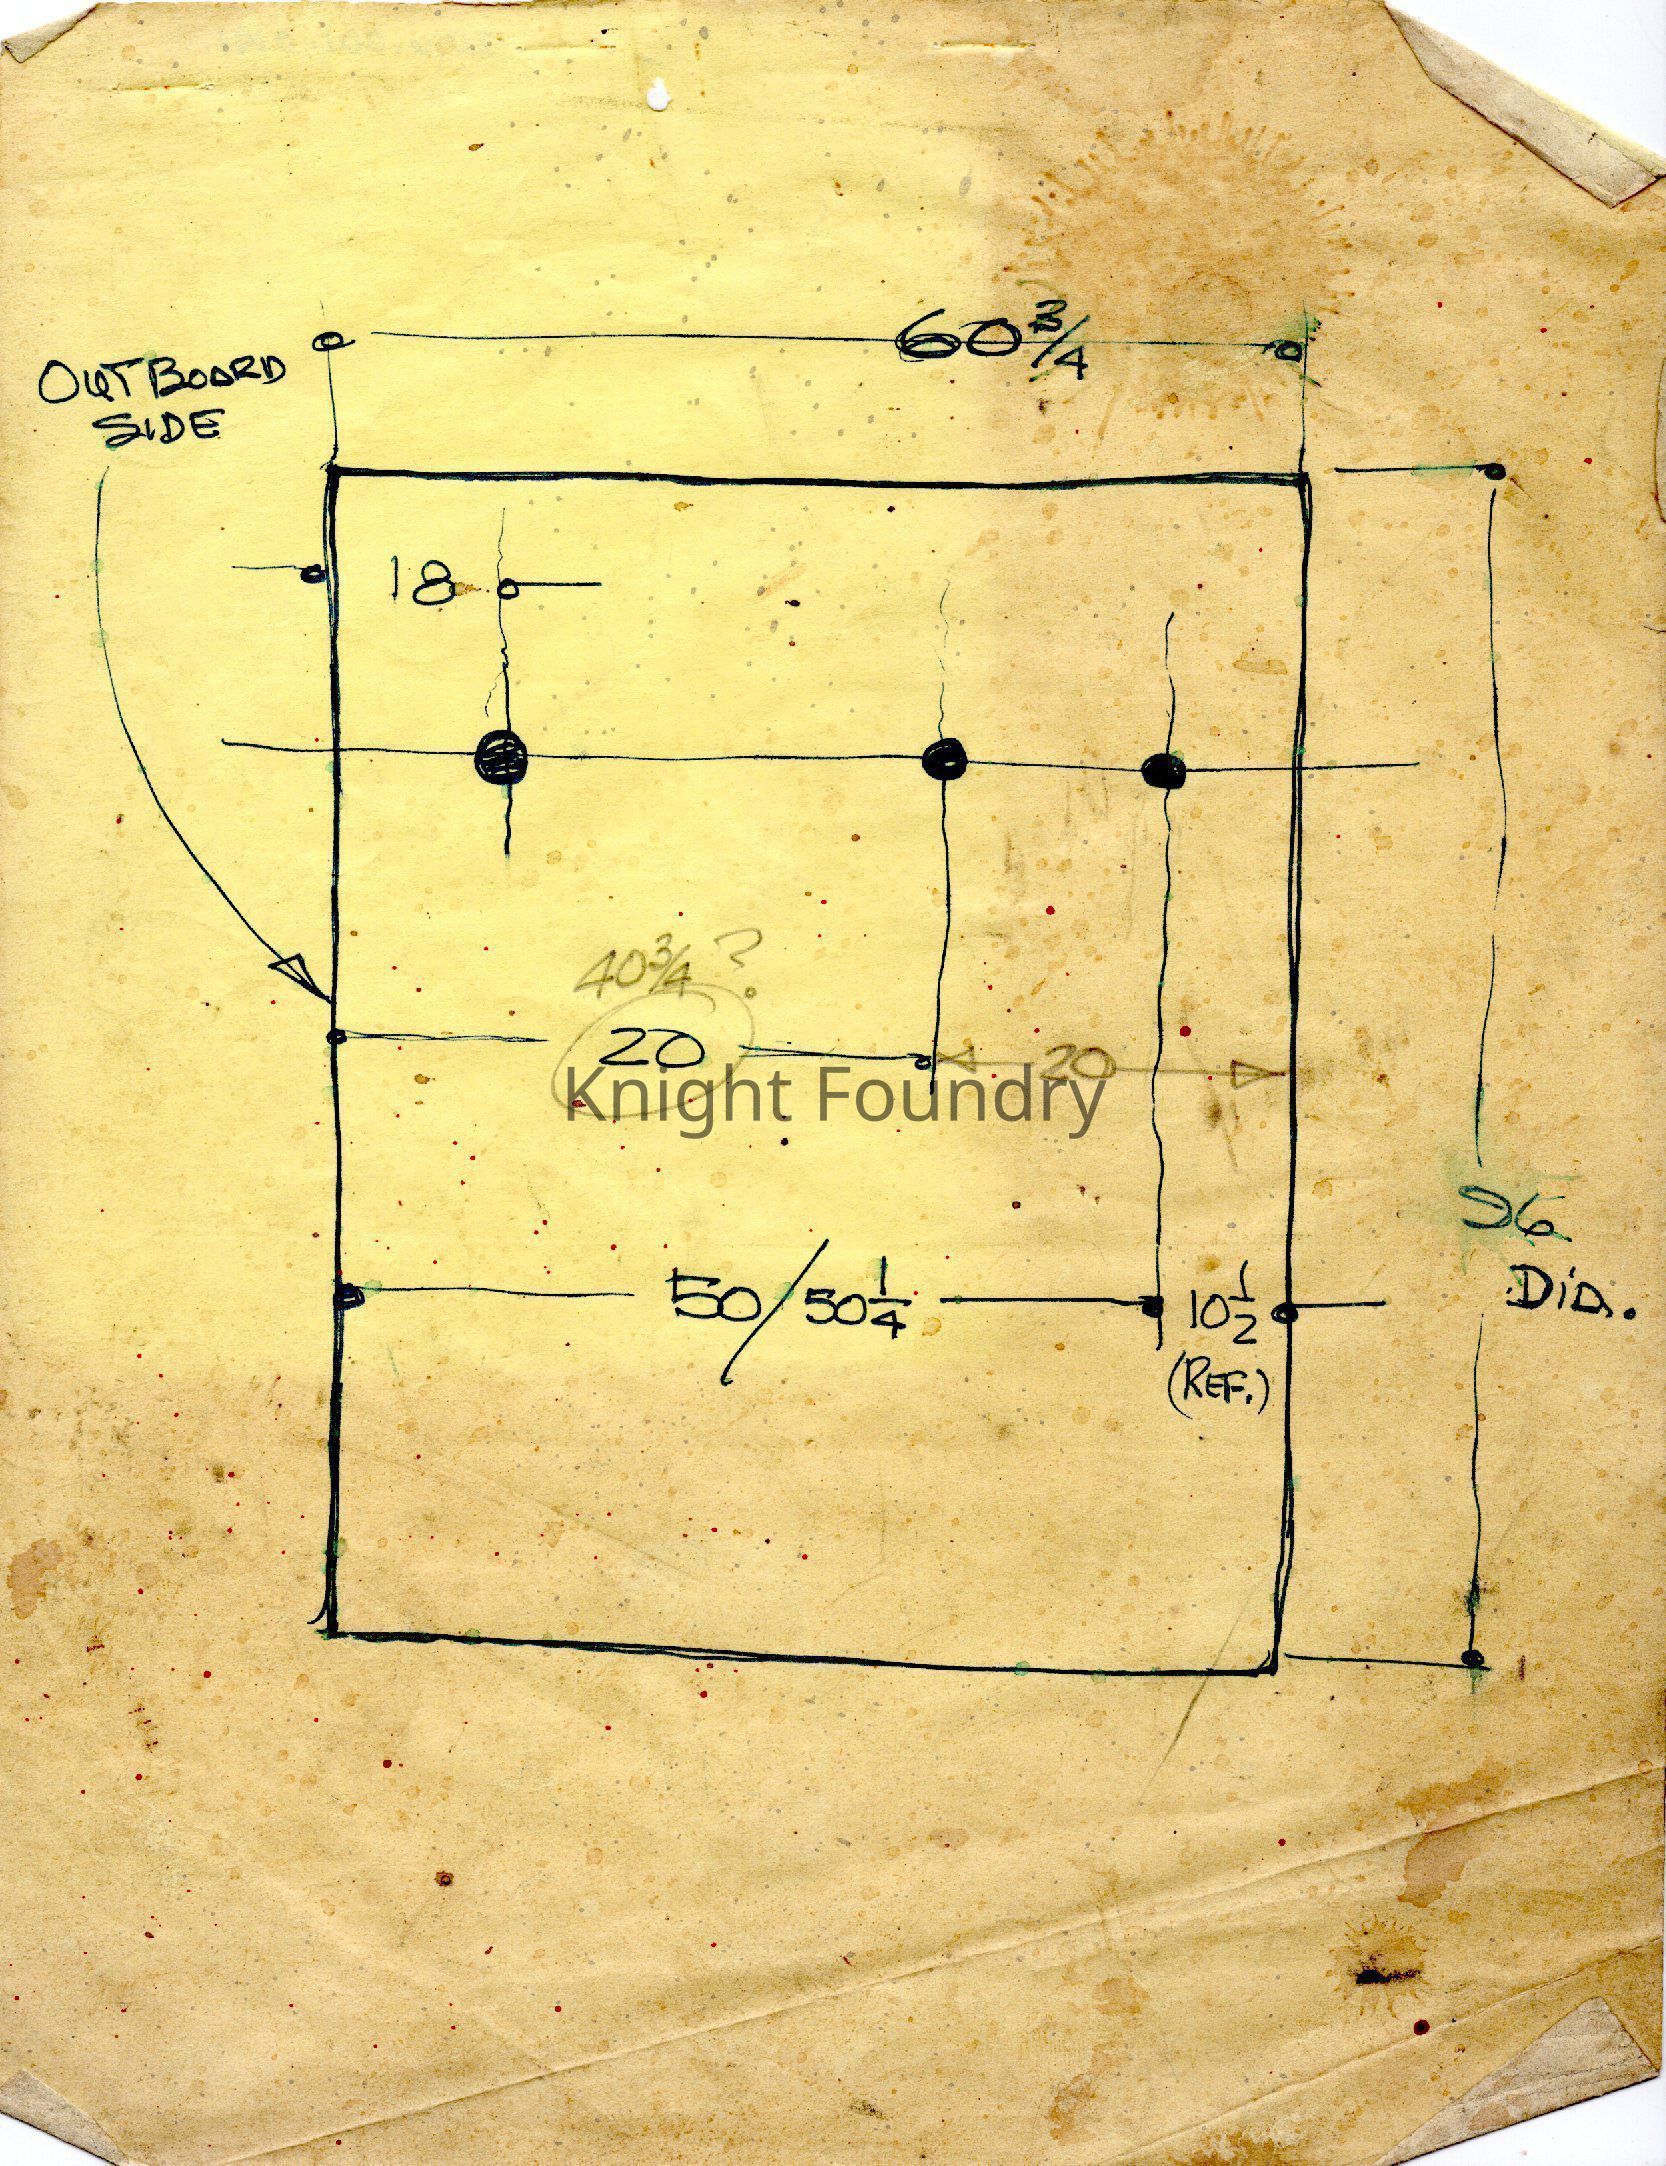 60 3/4
OUTBOARD
SIDE
18
40 3/4 ?
20
20
Knight Foundry
96
DIA.
50/50 1/4
10 1/2
(REF.)